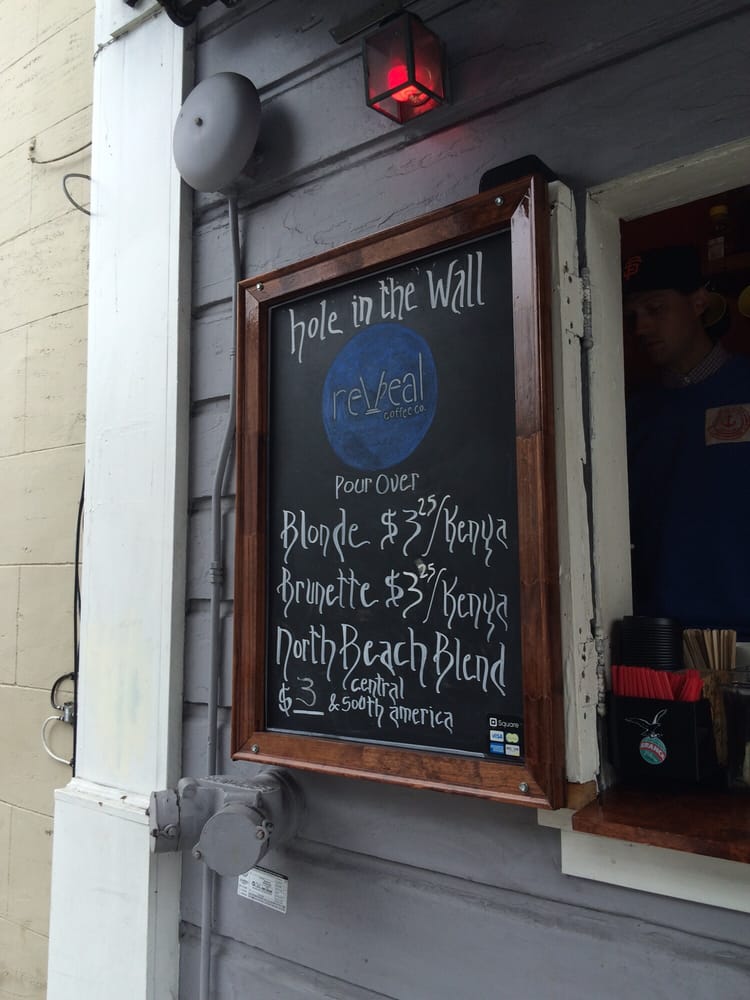 hole in the Wall
reveal
coffee co.
Pour Over
Blonde $3 25/Kenya
Brunette $3 25/Kenya
North Beach Blend
$3 central
& south america
Square
VISA